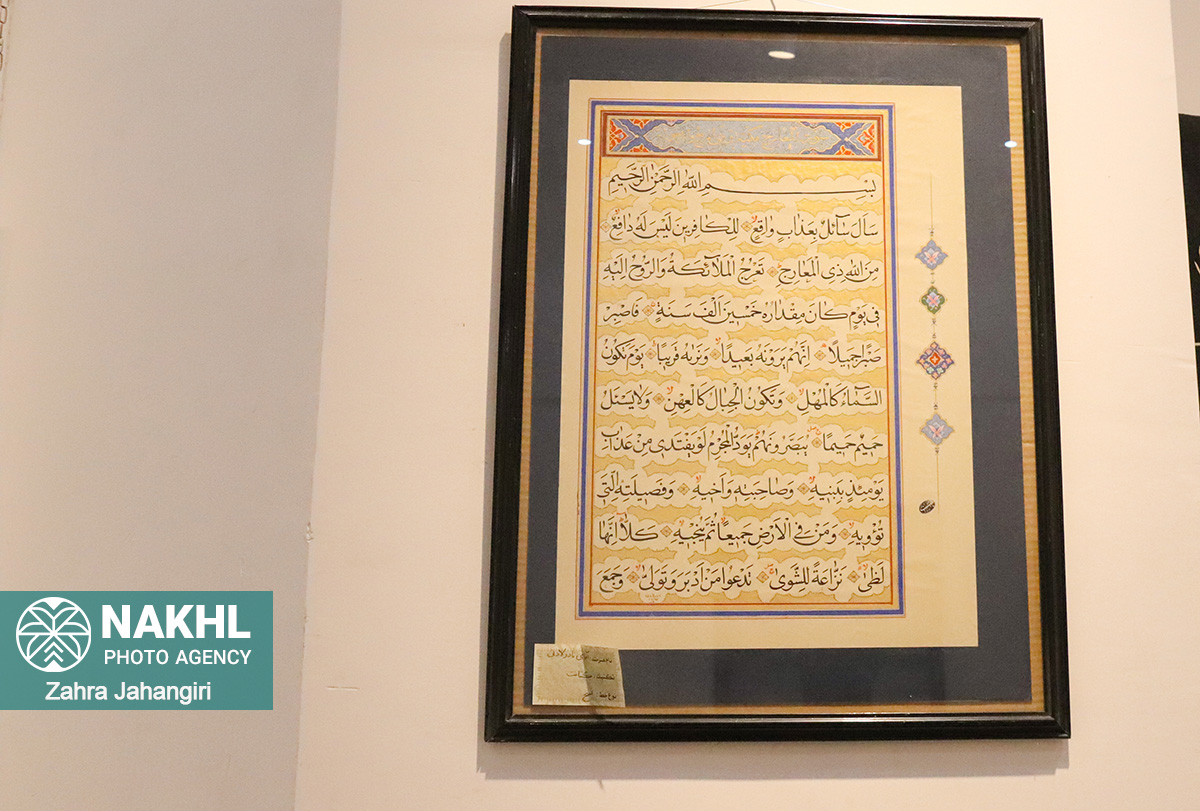 بِسْمِ اللهِ الرَّحْمٰنِ الرَّحِيمِ
سَاَلَ سَآئِلٌ بِعَذَابٍ وٰاقِعٍ لِلْكَافِرِينَ لَيْسَ لَهُ دَافِعٌ
مِنَ اللهِ ذِي الْمَعَارِجِ تَعْرُجُ الْمَلَآئِكَةُ وَالرُّوحُ اِلَيْهِ
فِي يَوْمٍ كَانَ مِقْدَارُهُ خَمْسِينَ اَلْفَ سَنَةٍ فَاصْبِرْ
صَبْرًا جَمِيلًا اِنَّهُمْ يَرَوْنَهُ بَعِيدًا وَنَرٰيهُ قَرِيبًا يَوْمَ تَكُونُ
السَّمَآءُ كَالْمُهْلِ وَتَكُونُ الْجِبَالُ كَالْعِهْنِ وَلَا يَسْئَلُ
حَمِيمٌ حَمِيمًا يُبَصَّرُونَهُمْ يَوَدُّ الْمُجْرِمُ لَوْ يَفْتَدِي مِنْ عَذَابِ
يَوْمَئِذٍ بِبَنِيهِ وَصَاحِبَتِهِ وَاَخِيهِ وَفَصِيلَتِهِ الَّتِي
تُؤْوِيهِ وَمَنْ فِي الْاَرْضِ جَمِيعًا ثُمَّ يُنْجِيهِ كَلَّا اِنَّهَا
لَظٰى نَزَّاعَةً لِلشَّوٰى تَدْعُوا مَنْ اَدْبَرَ وَتَوَلّٰى وَجَمَعَ
NAKHL
PHOTO AGENCY
Zahra Jahangiri